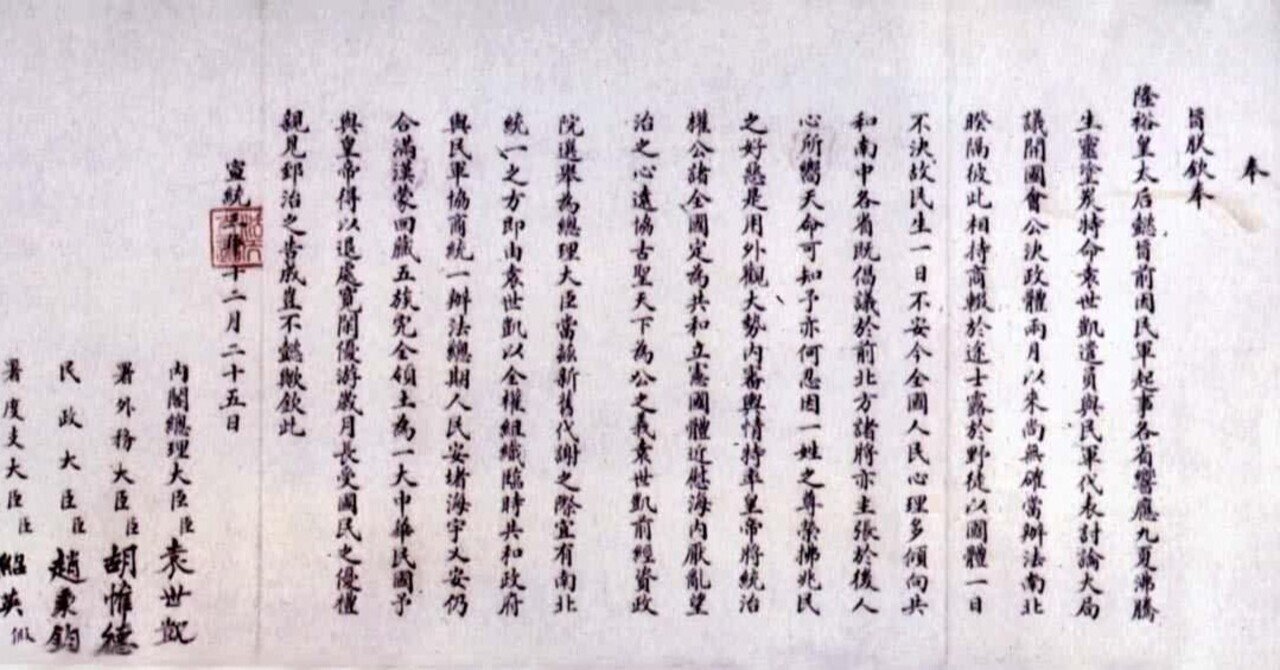 奉
旨朕欽奉
隆裕皇太后懿旨前因民軍起事各省響應九夏沸騰
生靈塗炭特命袁世凱遣員與民軍代表討論大局
議開國會公決政體兩月以來尚無確當辦法南北
睽隔彼此相持商輟於途士露於野徒以國體一日
不決故民生一日不安今全國人民心理多傾向共
和南中各省既倡議於前北方諸將亦主張於後人
心所嚮天命可知予亦何忍因一姓之尊榮拂兆民
之好惡是用外觀大勢內審輿情特率皇帝將統治
權公諸全國定為共和立憲國體近慰海內厭亂望
治之心遠協古聖天下為公之義袁世凱前經資政
院選舉為總理大臣當茲新舊代謝之際宜有南北
統一之方即由袁世凱以全權組織臨時共和政府
與民軍協商統一辦法總期人民安堵海宇乂安仍
合滿漢蒙回藏五族完全領土為一大中華民國予
與皇帝得以退處寬閒優游歲月長受國民之優禮
親見郅治之告成豈不懿歟欽此
宣統三年十二月二十五日
內閣總理大臣臣袁世凱
署外務大臣臣胡惟德
民政大臣臣趙秉鈞
署度支大臣臣紹英假